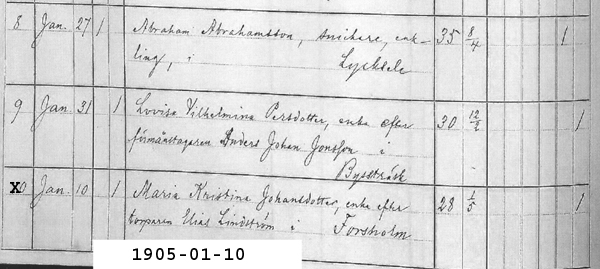 8 Jan. 27 1 Abraham Abrahamsson, snickare, enk- 35 8/4 1
ling, i Lycksele
9 Jan. 31 1 Lovisa Vilhelmina Persdotter, enka efter 30 12/2 1
förmånstagaren Anders Johan Jonsson i
Bysträsk
X0 Jan. 10 1 Maria Kristina Johansdotter, enka efter 28 1/5 1
torparen Elias Lindström i Forsholm
1905-01-10